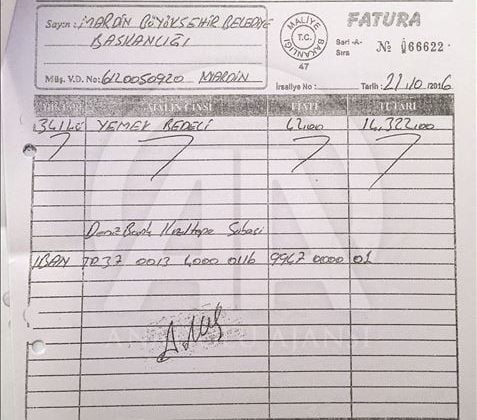 Sayın: MARDİN BÜYÜKŞEHİR BELEDİYE
BAŞKANLIĞI
Müş. V.D. No: 6120050920 MARDİN
MALİYE
T.C.
BAKANLIĞI
47
FATURA
Seri -A-
Sıra
№ 066622
İrsaliye No:
Tarih: 21.10./2016
MALIN CİNSİ FİYATI TUTARI
341 YEMEK BEDELİ 42,00 14,322,00
DenizBank Kızıltepe Şubesi
IBAN TR37 0013 4000 0116 9967 0000 01